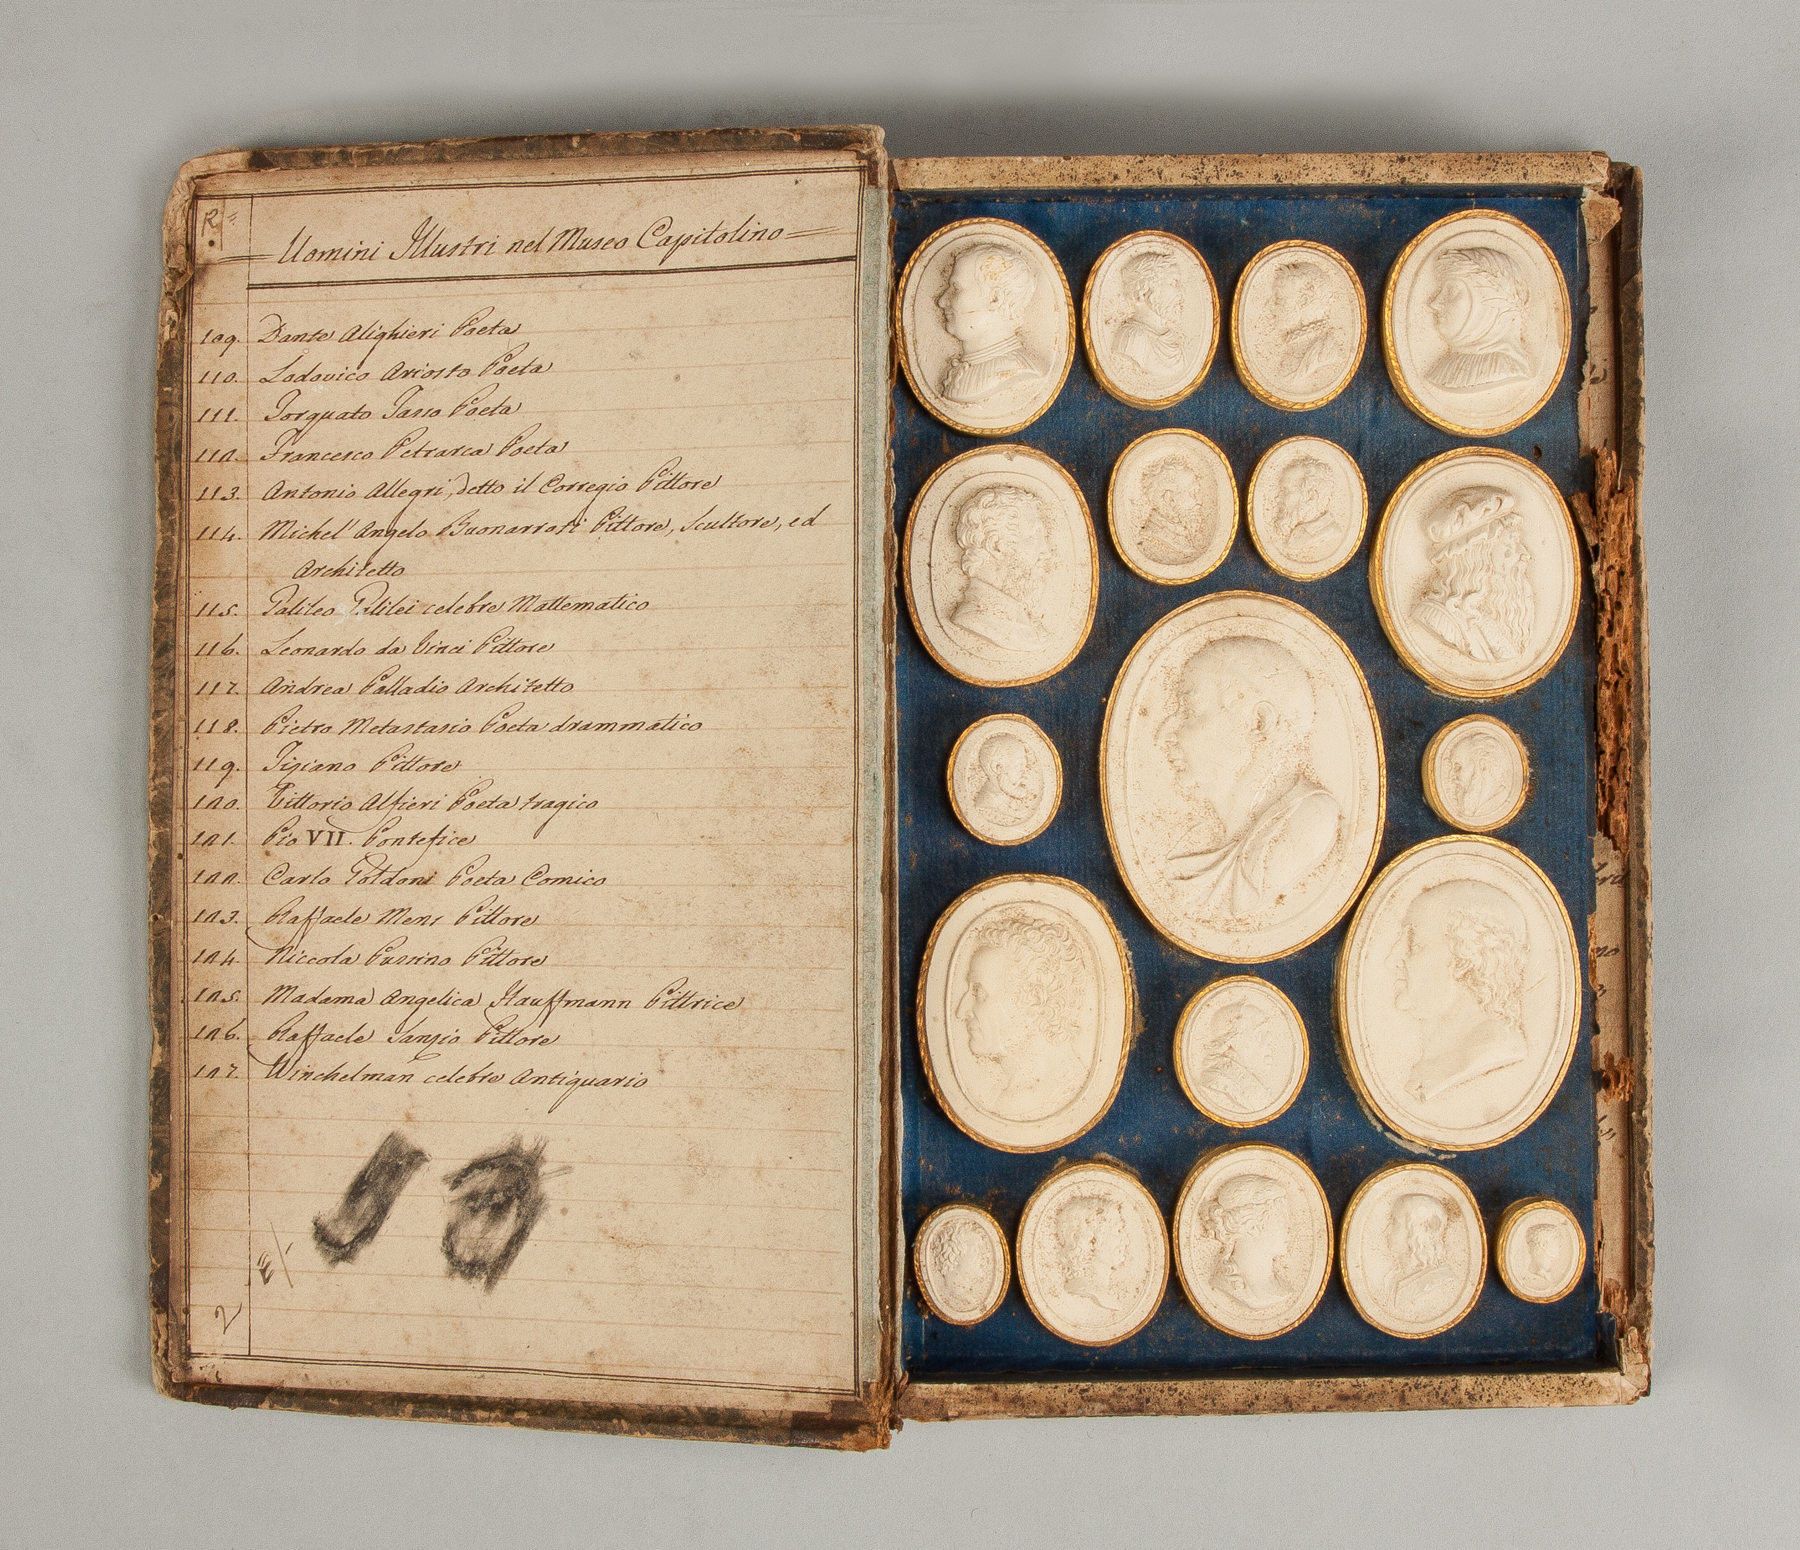 Uomini Illustri nel Museo Capitolino
109. Dante Alighieri Poeta
110. Lodovico Ariosto Poeta
111. Torquato Tasso Poeta
112. Francesco Petrarca Poeta
113. Antonio Allegri, detto il Corregio Pittore
114. Michel' Angelo Buonarroti Pittore, Scultore, ed
Architetto
115. Galileo Galilei celebre Mattematico
116. Leonardo da Vinci Pittore
117. Andrea Palladio Architetto
118. Pietro Metastasio Poeta drammatico
119. Tiziano Pittore
120. Vittorio Alfieri Poeta tragico
121. Pio VII. Pontefice
122. Carlo Goldoni Poeta Comico
123. Raffaele Mens Pittore
124. Niccola Pussino Pittore
125. Madama Angelica Hauffmann Pittrice
126. Raffaele Sanzio Pittore
127. Winchelman celebre Antiquario
2